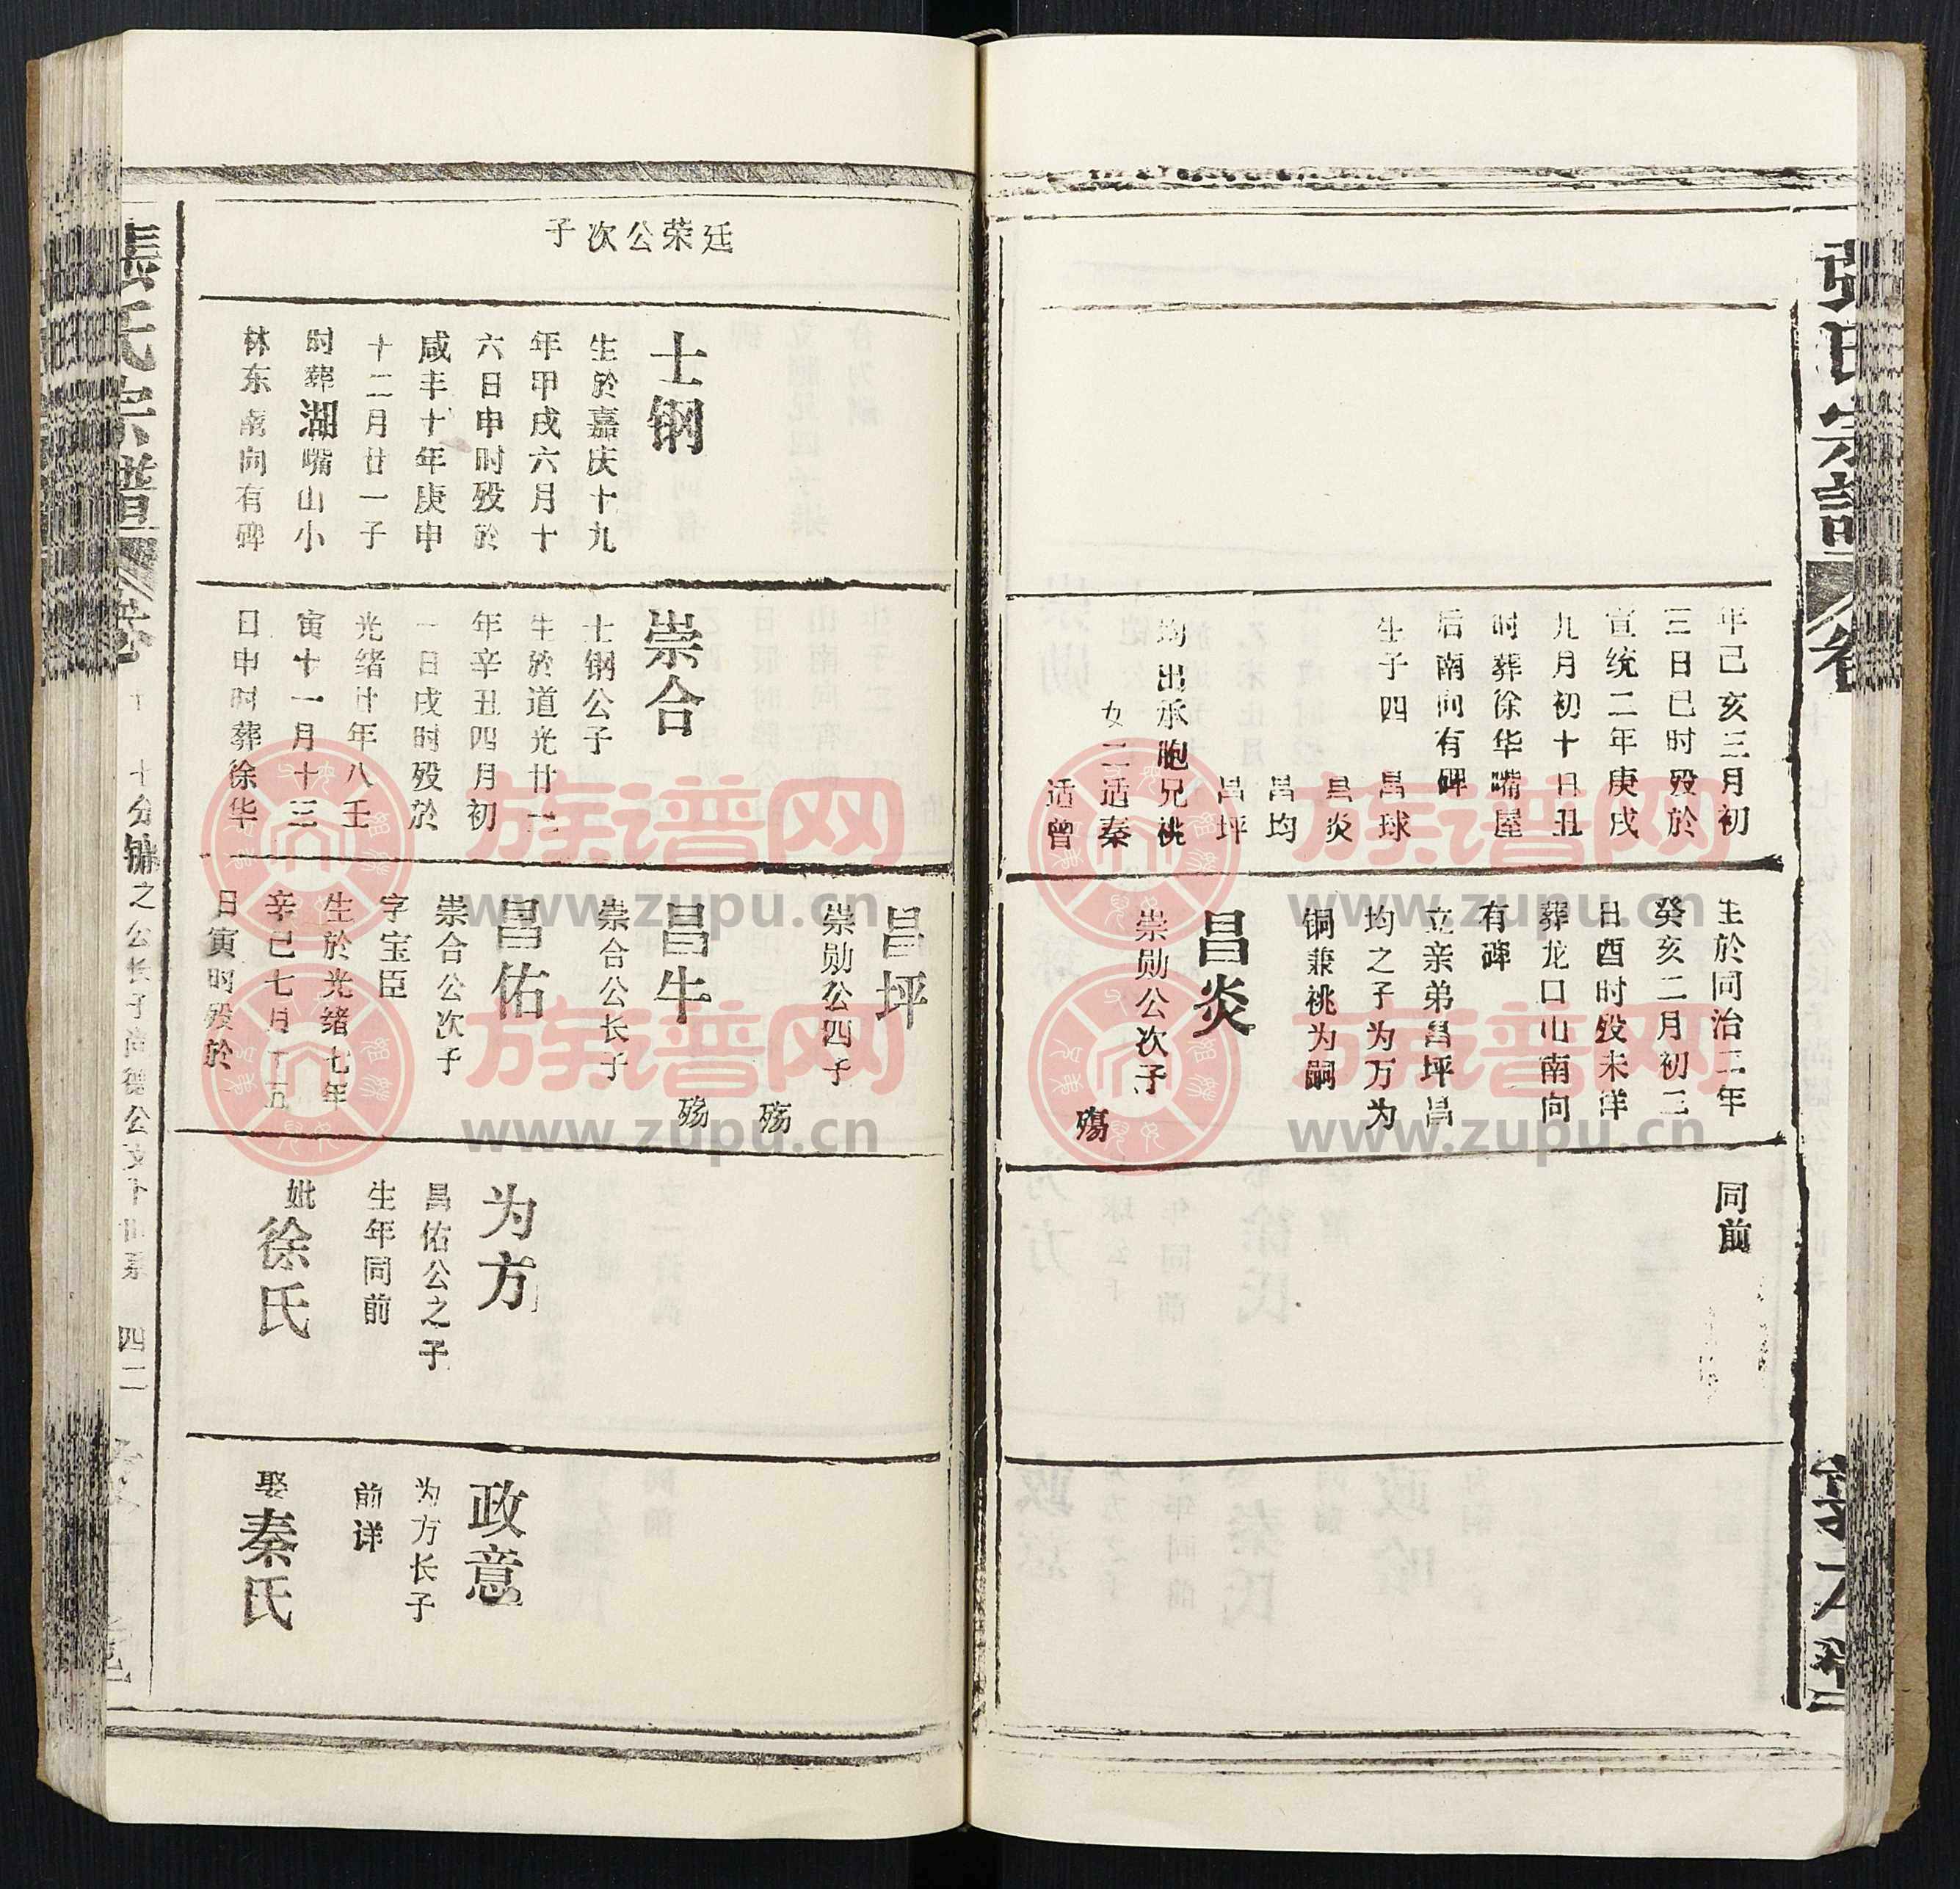 张氏宗谱
卷
年己亥三月初
三日巳时殁於
宣统二年庚戌
九月初十日丑
时葬徐华嘴屋
后南向有碑
生子四 昌球
昌炎
昌均
昌坪
均出承胞兄祧
女二适秦
适曾
生於同治二年
癸亥二月初三
日酉时殁未详
葬龙口山南向
有碑
立亲弟昌坪昌
均之子为万为
铜兼祧为嗣
昌炎
崇勋公次子
殇
同前
廷荣公次子
士钢
生於嘉庆十九
年甲戌六月十
六日申时殁於
咸丰十年庚申
十二月廿一子
时葬湖嘴山小
林东南向有碑
崇合
士钢公子
生於道光廿一
年辛丑四月初
一日戌时殁於
光绪廿年八壬
寅十一月十三
日申时葬徐华
昌坪
崇勋公四子
殇
昌牛
崇合公长子
殇
昌佑
崇合公次子
字宝臣
生於光绪七年
辛巳七月十五
日寅时殁於
为方
昌佑公之子
生年同前
妣徐氏
政意
为方长子
前详
娶秦氏
张氏宗谱
卷
四二
族谱网
www.zupu.cn
族谱网
www.zupu.cn
族谱网
www.zupu.cn
族谱网
www.zupu.cn